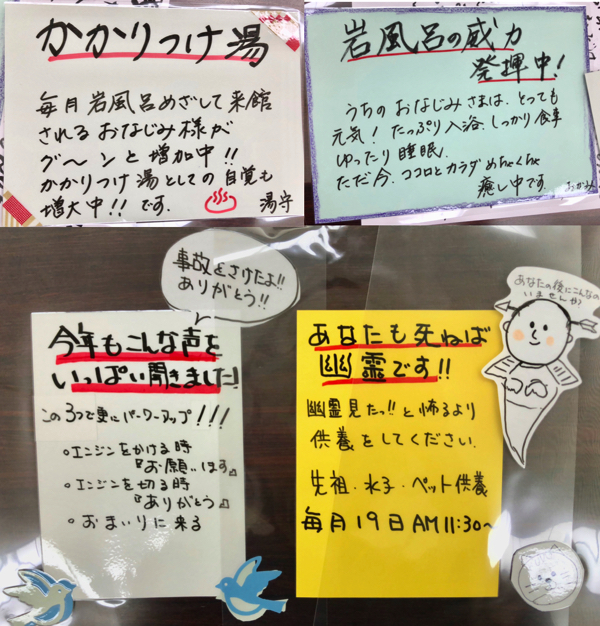 かかりつけ湯
毎月岩風呂めざして来館
されるおなじみ様が
グ〜ンと増加中!!
かかりつけ湯としての自覚も
増大中!! です.
湯守
岩風呂の威力
発揮中!
うちのおなじみさまは、とっても
元気! たっぷり入浴、しっかり食事
ゆったり睡眠.
ただ今、ココロとカラダめんくんく
癒し中です. おかみ
事故をさけたよ!!
ありがとう!!
今年もこんな声を
いっぱい聞きました!
この3つで更にパーワーアップ!!!
○エンジンをかける時
『お願います』
○エンジンを切る時
『ありがとう』
○おまいりに来る
あなたの後にこんなの
いませんか?
あなたも死ねば
幽霊です!!
幽霊見たっ!!と怖るより
供養をしてください.
先祖・水子・ペット供養
毎月19日AM11:30〜